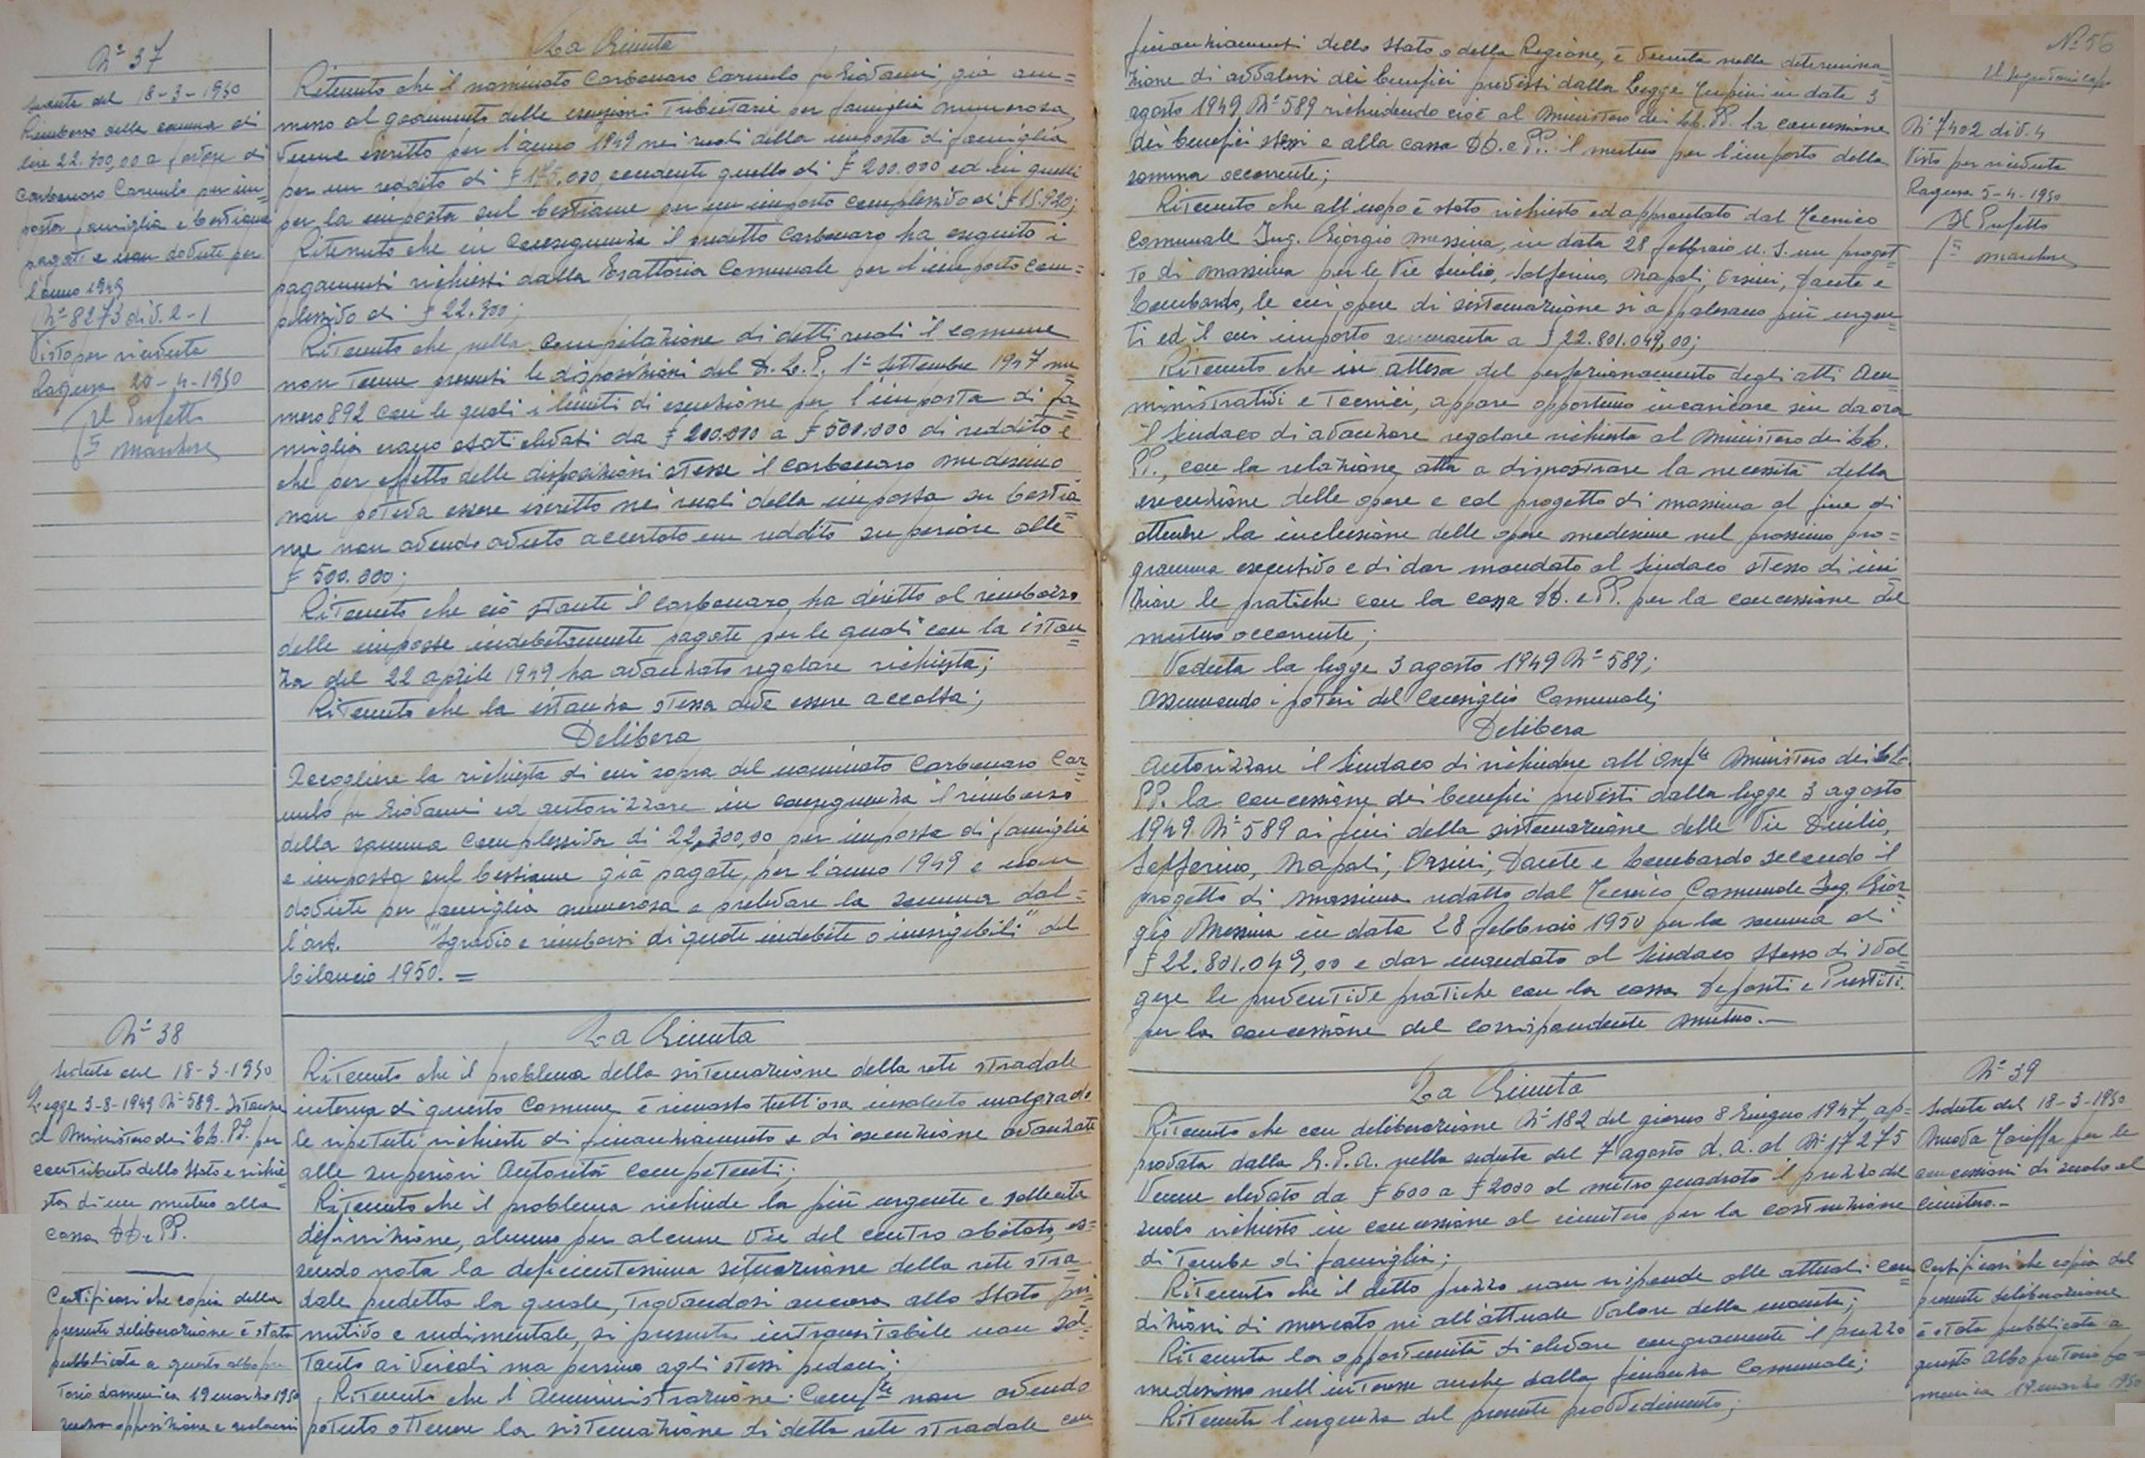 Nº 37
Seduta del 18-3-1950
Rimborso della somma di
lire 22.300,00 a favore di
Carbonaro Carmelo per im=
posta famiglia e bestiame
pagate e non dovute per
l'anno 1949
Nº 8273 div. 2-1
Visto per ricevuta
Ragusa 20-4-1950
Il Prefetto
La Giunta
Ritenuto che il nominato Carbonaro Carmelo fu Giovanni, già am=
messo al godimento delle esenzioni tributarie per famiglia numerosa,
venne iscritto per l'anno 1949 nei ruoli della imposta di famiglia
per un reddito di £ eccedente quello di £ 200.000 ed in quelli
per la imposta sul bestiame per un importo complessivo di £ 15.920;
Ritenuto che in conseguenza il predetto Carbonaro ha eseguito i
pagamenti richiesti dalla Esattoria Comunale per l'importo com=
plessivo di £ 22.300;
Ritenuto che nella compilazione di detti ruoli il comune
non tenne presenti le disposizioni del D.L.P. 1º Settembre 1947 nu
mero 892 con le quali i limiti di esenzione per l'imposta di fa=
miglia erano stati elevati da £ 200.000 a £ 500.000 di reddito e
che per effetto delle disposizioni stesse il Carbonaro medesimo
non poteva essere iscritto nei ruoli della imposta su bestia=
me non avendo avuto accertato un reddito superiore alle
£ 500.000;
Ritenuto che ciò stante il Carbonaro ha diritto al rimborso
delle imposte indebitamente pagate per le quali con la istan=
za del 22 aprile 1949 ha avanzato regolare richiesta;
Ritenuto che la istanza stessa deve essere accolta;
Delibera
Accogliere la richiesta di cui sopra del nominato Carbonaro Car=
melo fu Giovanni ed autorizzare in conseguenza il rimborso
della somma complessiva di 22.300,00 per imposta di famiglia
e imposta sul bestiame già pagate, per l'anno 1949 e non
dovute per famiglia numerosa e prelevare la somma dal=
l'art. "Sgravio e rimborsi di quote indebite o inesigibili" del
bilancio 1950. =
Nº 38
Seduta del 18-3-1950
Legge 3-8-1949 Nº 589 - Istanza
al Ministero dei LL.PP. per
contributo dello Stato e richie=
sta di un mutuo alla
cassa DD. e PP.
Certificasi che copia della
presente deliberazione è stata
pubblicata a questo albo pre
torio domenica 19 marzo 1950
senza opposizione e reclami
La Giunta
Ritenuto che il problema della sistemazione della rete stradale
interna di questo Comune è rimasto tutt'ora insoluto malgrado
le ripetute richieste di finanziamento e di esecuzione avanzate
alle superiori Autorità competenti;
Ritenuto che il problema richiede la più urgente e sollecita
definizione, almeno per alcune Vie del centro abitato, es=
sendo nota la deficientissima situazione della rete stra=
dale predetta la quale, trovandosi ancora allo stato pri=
mitivo e rudimentale, si presenta intransitabile non sol=
tanto ai veicoli ma persino agli stessi pedoni;
Ritenuto che l'Amministrazione Com/le non avendo
potuto ottenere la sistemazione di detta rete stradale con
finanziamenti dello Stato o della Regione, è venuta nella determina=
zione di avvalersi dei benefici previsti dalla legge Tupini in data 3
agosto 1949, Nº 589 richiedendo cioè al Ministero dei LL.PP. la concessione
dei benefici stessi e alla cassa DD. e PP. il mutuo per l'importo della
somma occorrente;
Ritenuto che all'uopo è stato richiesto ed approntato dal Tecnico
Comunale Ing. Giorgio Messina, in data 28 febbraio u.s. un proget=
to di massima per le Vie Duilio, Solferino, Napoli, Orsini, Dante e
Lombardo, le cui opere di sistemazione si appalesano più urgen
ti ed il cui importo ammonta a £ 22.801.049,00;
Ritenuto che in attesa del perfezionamento degli atti Am
ministrativi e Tecnici, appare opportuno incaricare sin da ora
il Sindaco di avanzare regolare richiesta al Ministero dei LL.
PP., con la relazione atta a dimostrare la necessità della
esecuzione delle opere e col progetto di massima al fine di
ottenere la inclusione delle opere medesime nel prossimo pro=
gramma esecutivo e di dar mandato al Sindaco stesso di ini
ziare le pratiche con la cassa DD. e PP. per la concessione del
mutuo occorrente;
Veduta la legge 3 agosto 1949 Nº 589;
Assumendo i poteri del Consiglio Comunale;
Delibera
Autorizzare il Sindaco di richiedere all'On/le Ministero dei LL.
PP. la concessione dei benefici previsti dalla legge 3 agosto
1949 Nº 589 ai fini della sistemazione delle Vie Duilio,
Solferino, Napoli, Orsini, Dante e Lombardo secondo il
progetto di massima redatto dal Tecnico Comunale Ing. Gior
gio Messina in data 28 febbraio 1950 per la somma di
£ 22.801.049,00 e dar mandato al Sindaco stesso di svol=
gere le preventive pratiche con la cassa Depositi e Prestiti
per la concessione del corrispondente mutuo. -
Nº 56
Il Segretario capo
Nº 7402 div. 4
Visto per ricevuta
Ragusa 5-4-1950
Il Prefetto
La Giunta
Ritenuto che con deliberazione Nº 182 del giorno 8 Giugno 1947, ap=
provata dalla G.P.A. nella seduta del 7 agosto d.a. al Nº 17275
venne elevato da £ 600 a £ 2000 al metro quadrato il prezzo del
suolo richiesto in concessione al cimitero per la costruzione
di tombe di famiglia;
Ritenuto che il detto prezzo non risponde alle attuali con
dizioni di mercato nè all'attuale valore della moneta;
Ritenuta la opportunità di elevare congruamente il prezzo
medesimo nell'interesse anche della finanza Comunale;
Ritenuta l'urgenza del presente provvedimento;
Nº 39
Seduta del 18-3-1950
Nuova Tariffa per le
concessioni di suolo al
cimitero. -
Certificasi che copia del
presente deliberazione
è stata pubblicata a
questo Albo pretorio do=
menica 19 marzo 1950